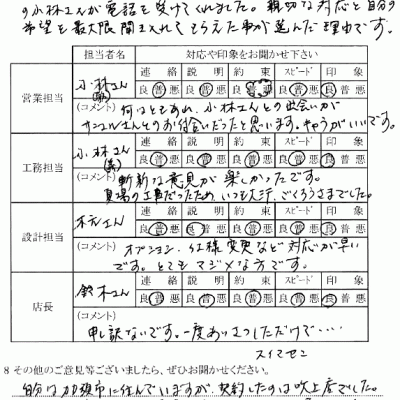 の小林さんが電話を受けてくれました。親切な対応と自分の
希望を最大限聞き入れてもらえた事が選んだ理由です。
担当者名 対応や印象をお聞かせ下さい
営業担当 小林さん
連絡 説明 約束 スピード 印象
良 普 悪 良 普 悪 良 普 悪 良 普 悪 良 普 悪
(コメント) 何はともあれ、小林さんとの出会いが
サンエルさんとのお付合いだったと思います。キャラがいいです。
工務担当 小林さん
連絡 説明 約束 スピード 印象
良 普 悪 良 普 悪 良 普 悪 良 普 悪 良 普 悪
(コメント) 斬新な意見が楽しかったです。
夏場の工事だったため、いつも大汗、ごくろうさまでした。
設計担当 さん
連絡 説明 約束 スピード 印象
良 普 悪 良 普 悪 良 普 悪 良 普 悪 良 普 悪
(コメント) オプション、仕様変更など対応が早い
です。とてもマジメな方です。
店長 鈴木さん
連絡 説明 約束 スピード 印象
良 普 悪 良 普 悪 良 普 悪 良 普 悪 良 普 悪
(コメント)
申し訳ないです。一度あいさつしただけで・・・
スイマセン
8 その他のご意見等ございましたら、ぜひお聞かせください。
自分は加須市に住んでいますが、契約したのは吹上店でした。